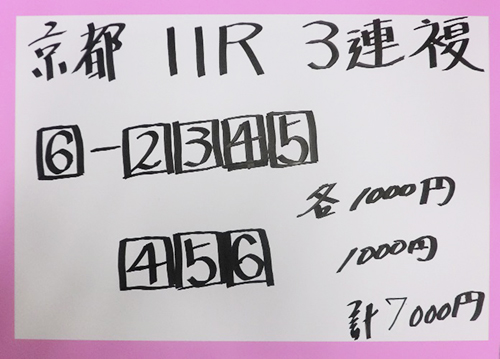 京都 11R 3連複
6-2345
各1000円
456
1000円
計7000円